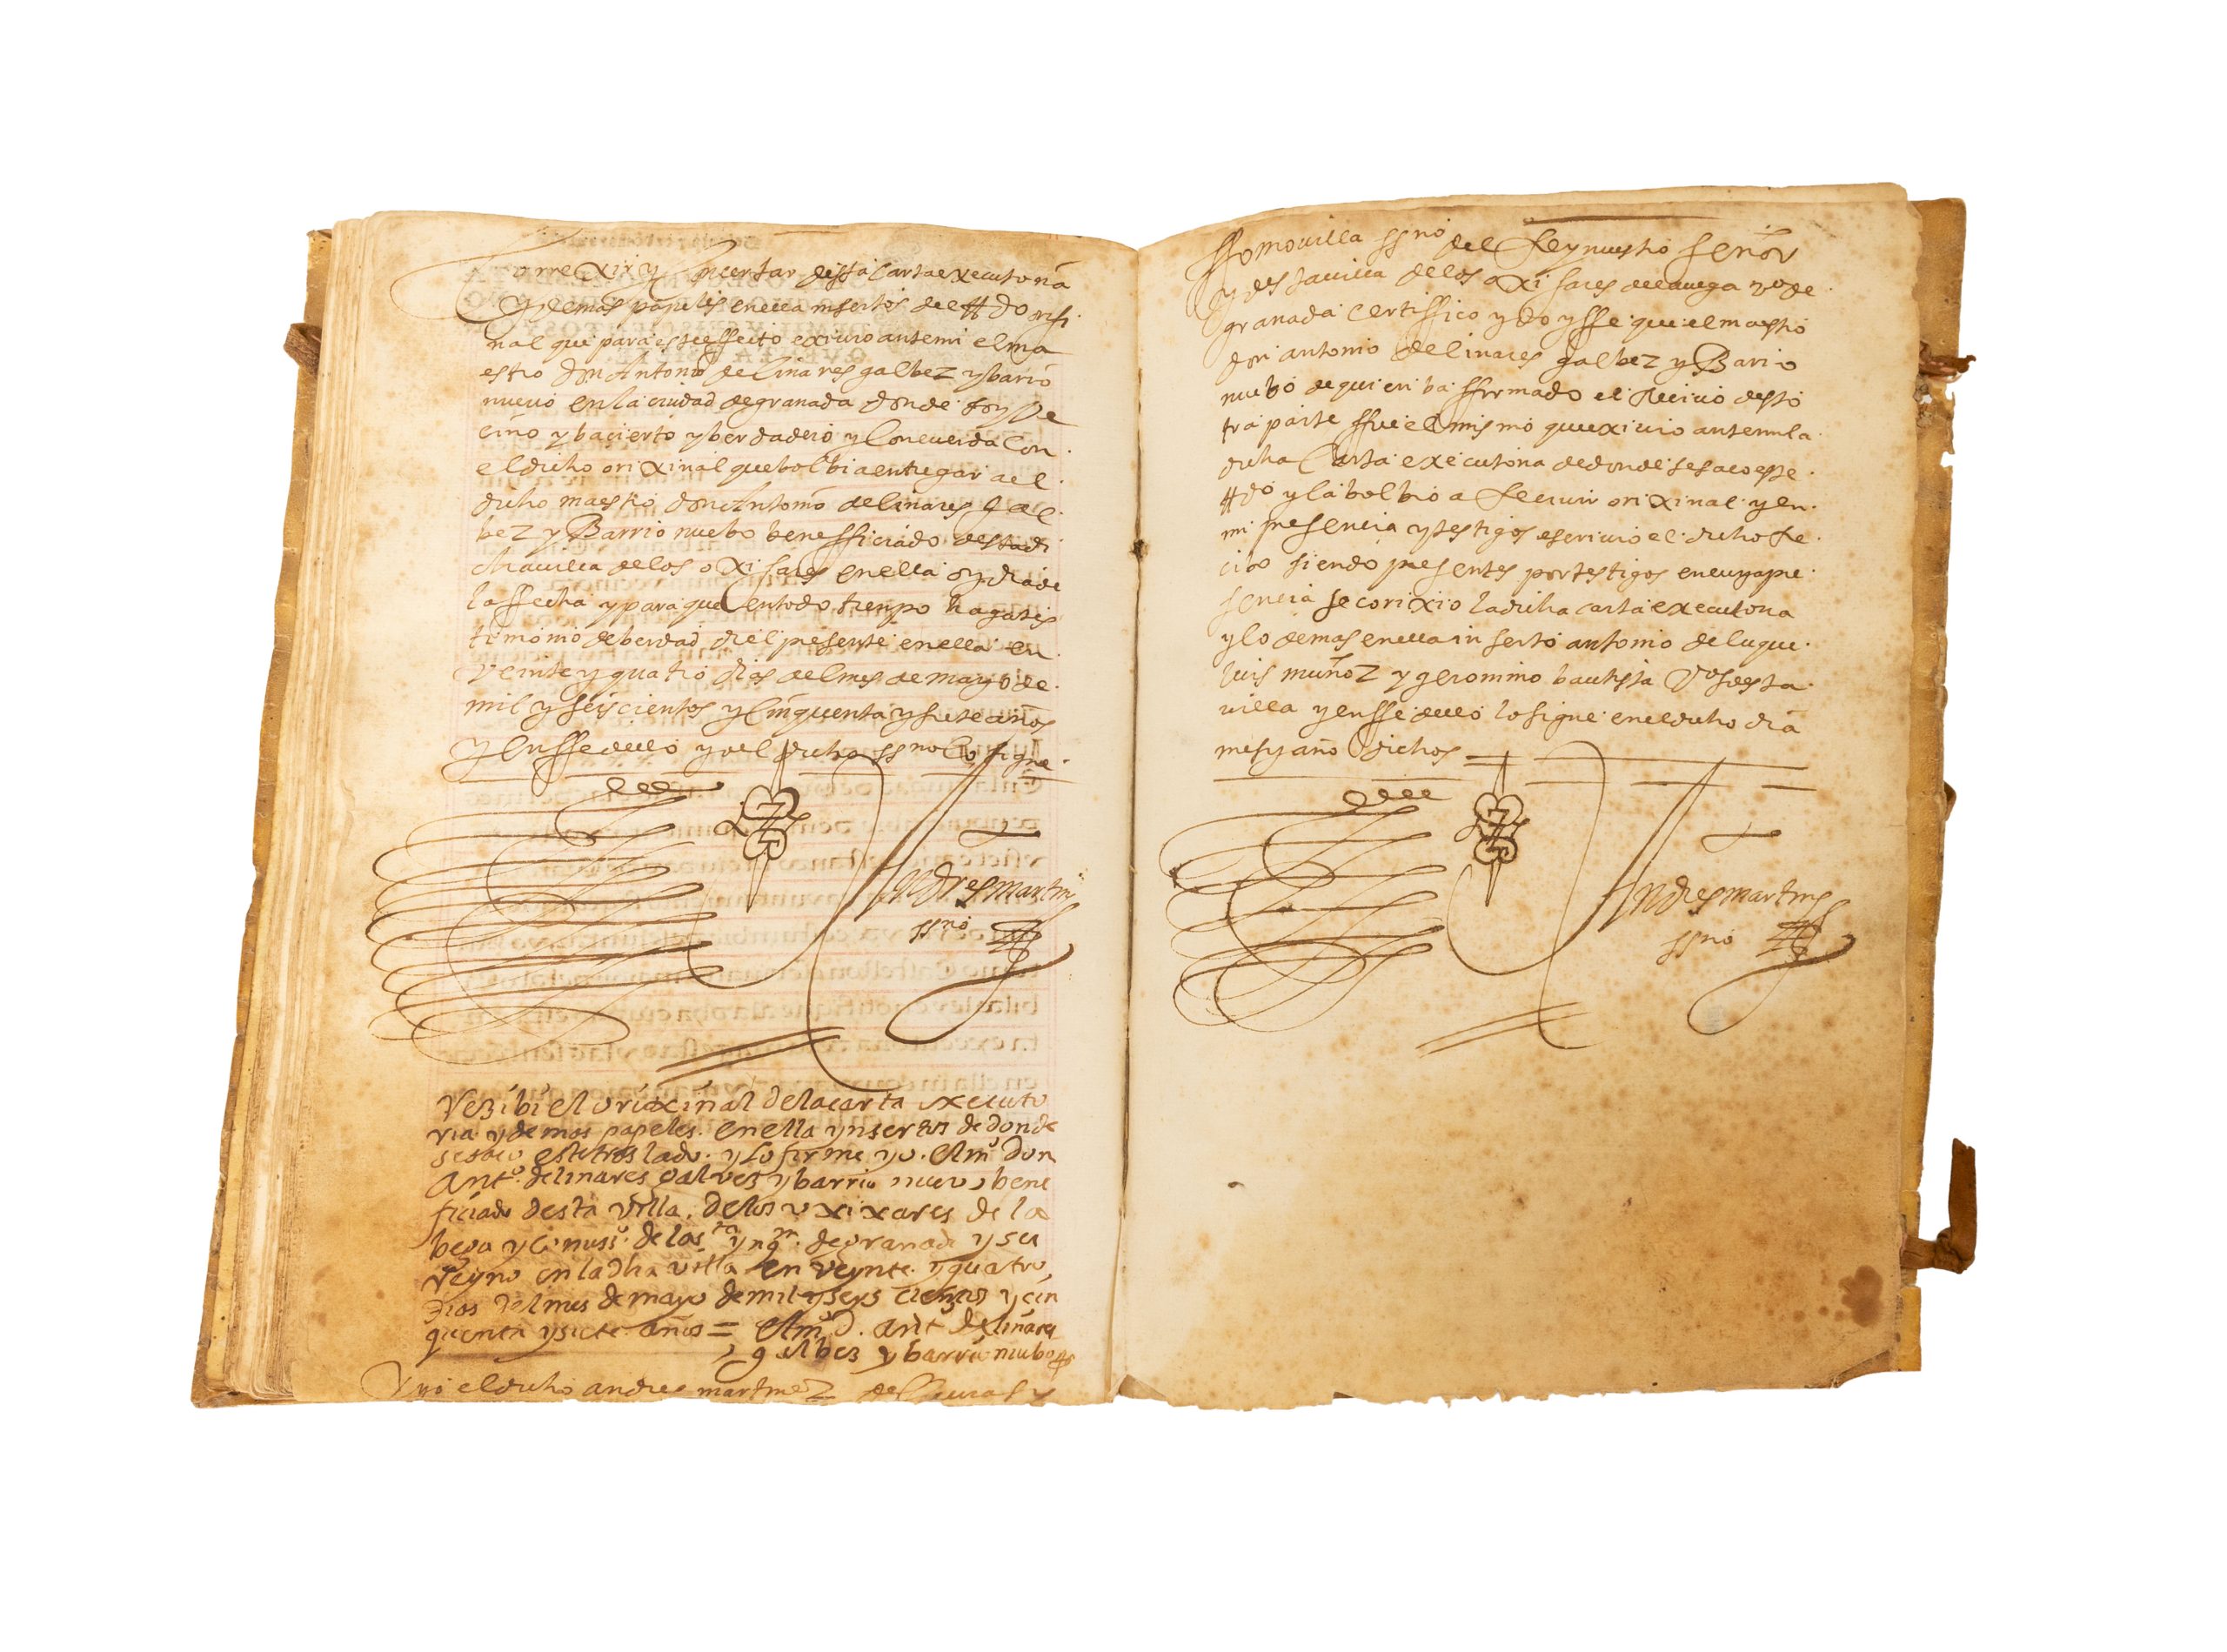 Correxixi y Concertar desta Carta executoria
y demas papeles en ella insertos del tdo orixi
nal que para este effecto exivio ante mi el ma
estro Don Antonio de linares galbez y barrio
nuevo en la ciudad de granada donde soy Ve
cino y ba cierto y berdadero y Concuerda Con
el dicho orixinal que bolbi a entregar a el
dicho maestro don Antonio de linares gal
bez y Barrio nuebo benefficiado desta di
cha villa de los oxixares en ella oy dia de
la ffecha y para que en todo tienpo haga tes
timonio de berdad di el presente en ella en
Veinte y quatro dias del mes de mayo de
mil y seiscientos y Cinquenta y siete años
y en ffe dello yo el dicho ssno lo signe
Andres martins
ssno
Rezibi el orixinal de la carta executo
ria y demas papeles en ella ynsertos de donde
se saco este traslado y lo firme yo el mº Don
Antº de linares galvez y barrio nuevo bene
ficiado desta villa de los oxixares de la
bega y Comissº de la stª ynqn de granada y su
Reyno en la dha villa en veynte y quatro
dias del mes de mayo de mil y seys cientos y cin
quenta y siete años = el mº D. Antº de linares
galbez y barrio nuebo
Y yo el dicho andres martinez de
ssno del Rey nuestro señor
y desta villa de los oxixares de la vega vº de
granada Certiffico y doy ffe que el maestro
don antonio de linares galbez y Barrio
nuebo de quien ba ffirmado el Recivo desto
tra parte ffue el mismo que exivio ante mi la
dicha Carta executoria de donde se saco este
tdo y la bolbio a Recivir orixinal y en
mi presencia y testigos escrivio el dicho Re
civo siendo presentes por testigos en cuya pre
sencia se corixio la dicha carta executoria
y lo demas en ella inserto antonio de luque
luis muñoz y geronimo bautista Vºs desta
villa y en ffe dello lo signe en el dicho dia
mes y año dichos
Andres martins
ssno